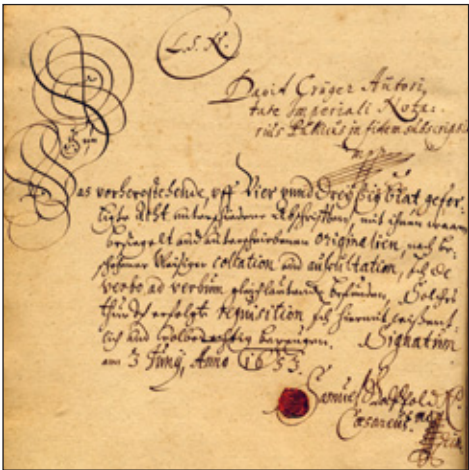 L. S. N.
David Crüger Autori,
tate Imperiali Nota:
rius Publicus in fidem subscripsit
mp
Das vorhergehende, uff Vier und dreyßig blat gefer-
tigte Acht unterschiedene Abschrifften, mit ihnen
besiegelt und unterschriebenen originalien, nach be-
schehener fleißiger collation und auscultation, sich de
verbo ad verbum gleichlautende befunden, Solches
thue Ich erfolgte requisition
lich und bezeugen. Signatum
am 3 Junij, Anno 1653.
Samuel
Caesareus